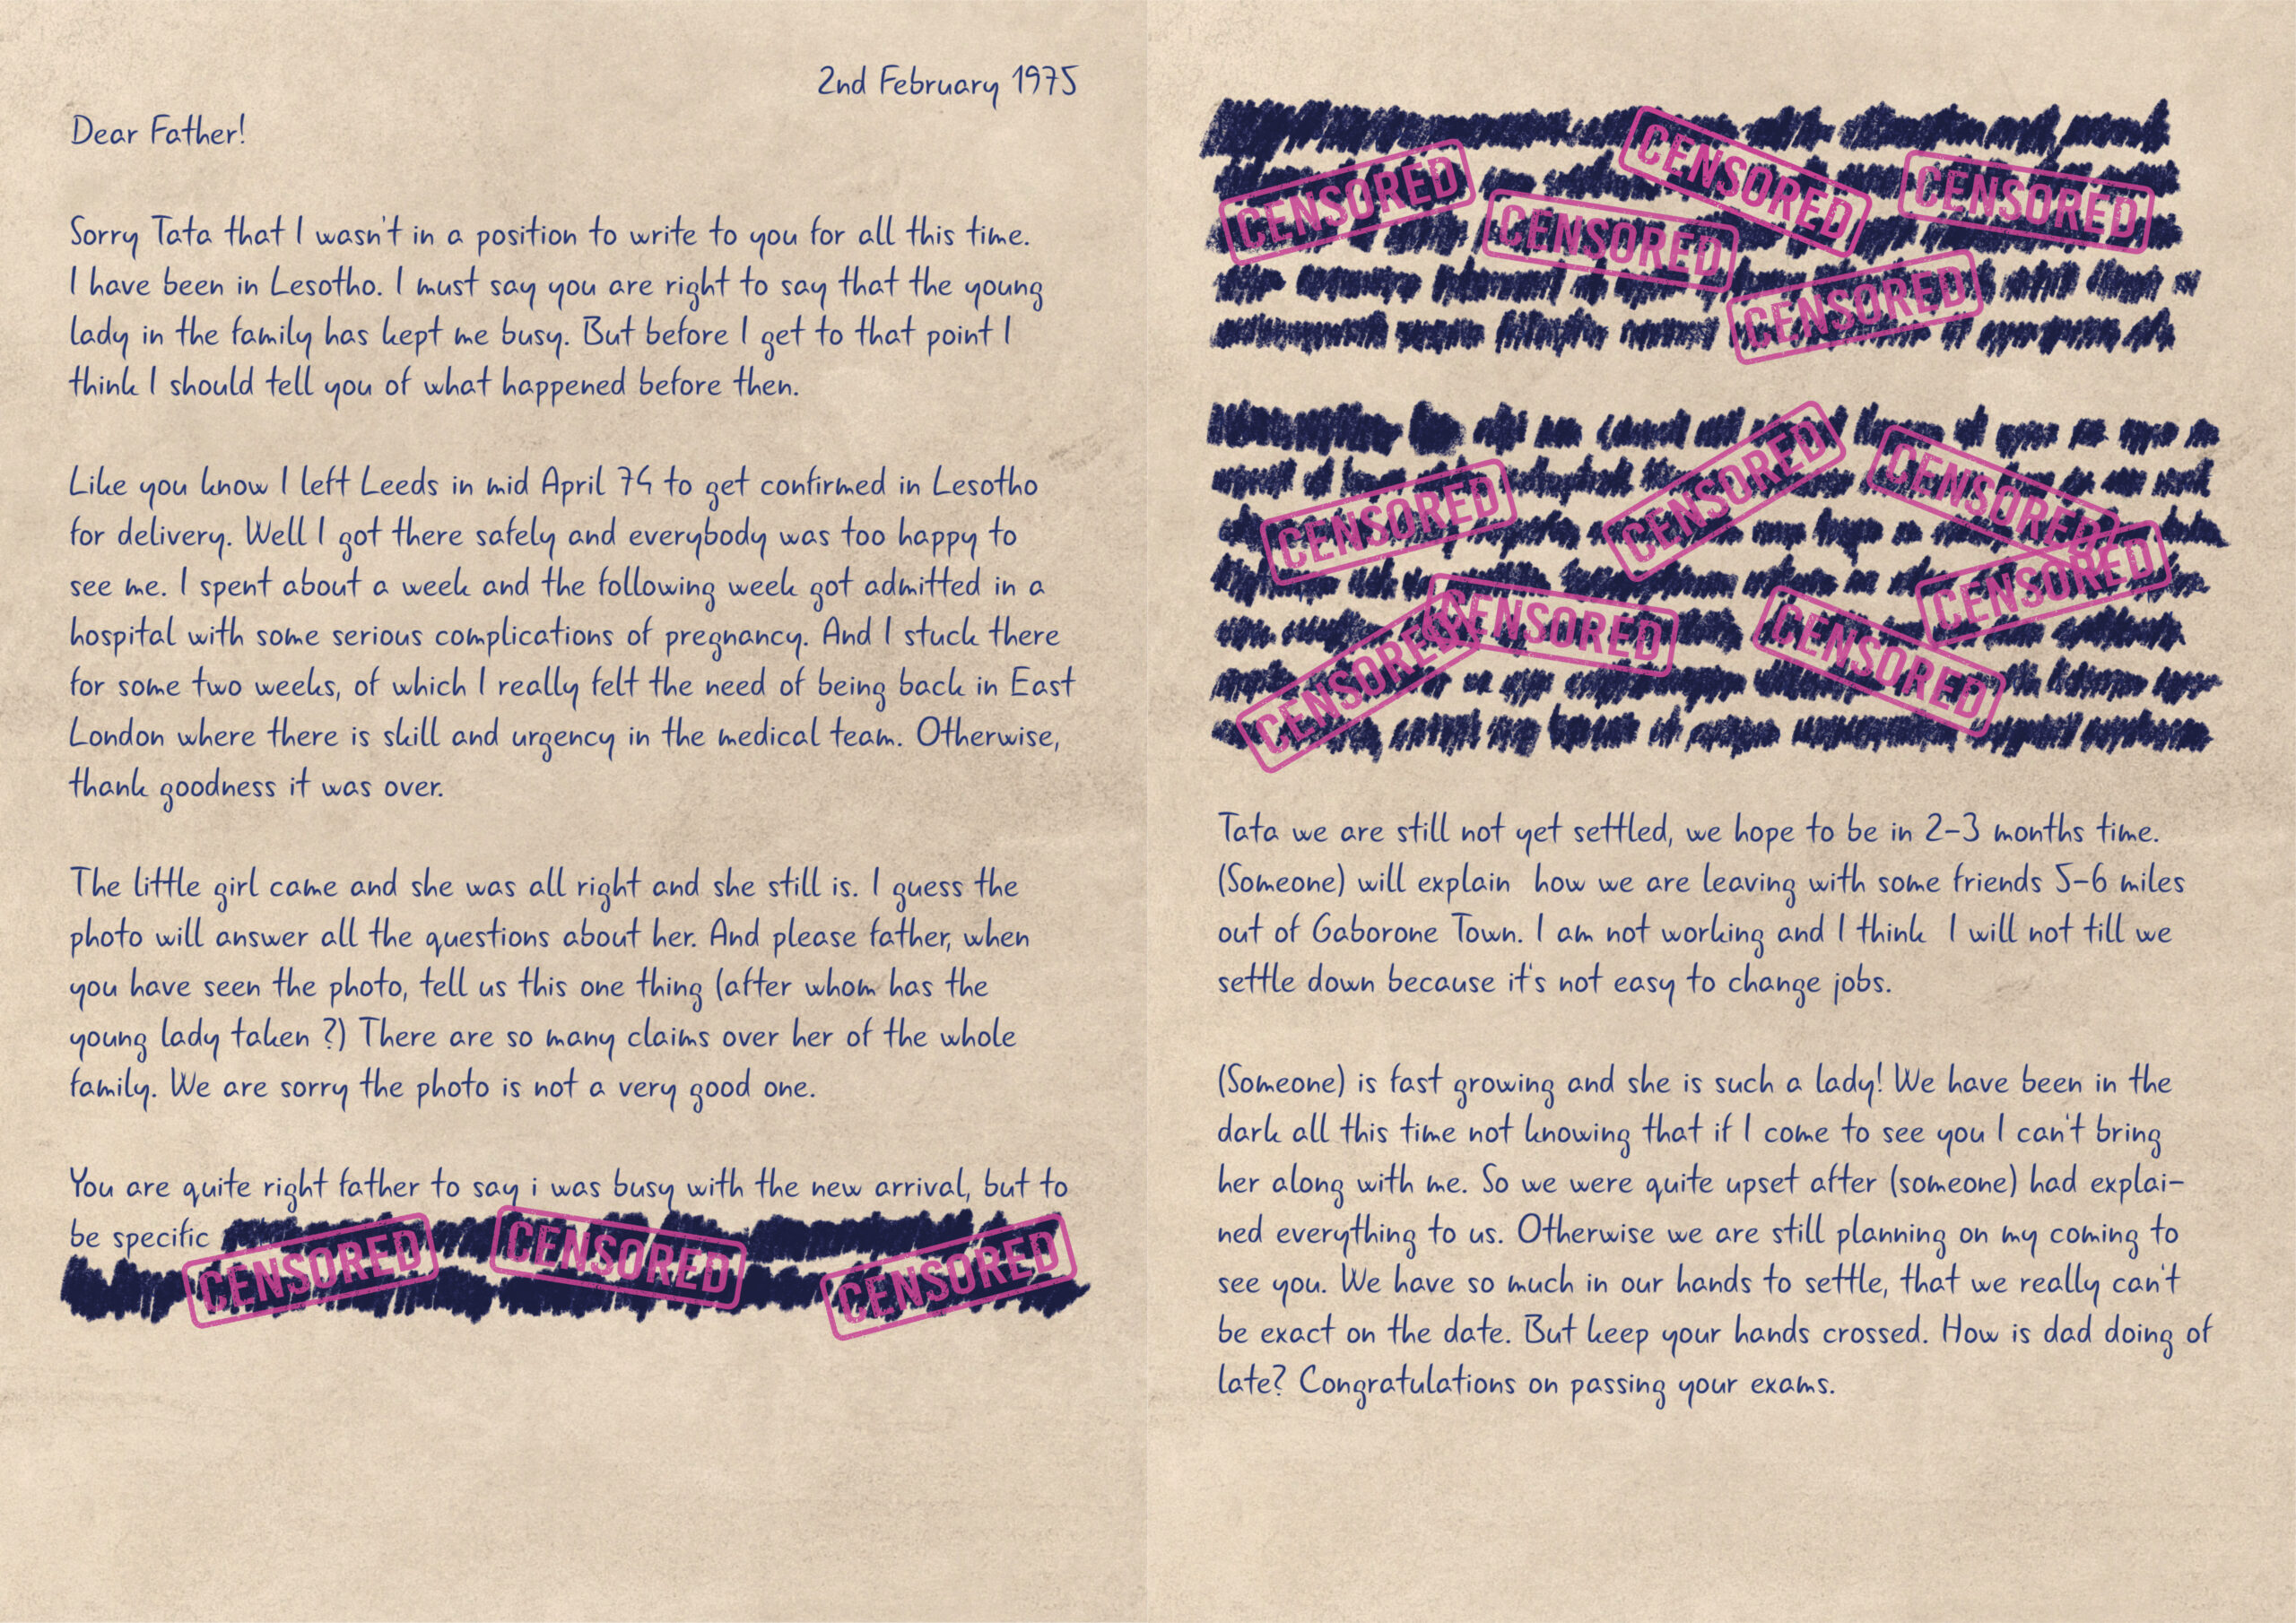 2nd February 1975
Dear Father!
Sorry Tata that I wasn't in a position to write to you for all this time.
I have been in Lesotho. I must say you are right to say that the young
lady in the family has kept me busy. But before I get to that point I
think I should tell you of what happened before then.
Like you know I left Leeds in mid April 74 to get confirmed in Lesotho
for delivery. Well I got there safely and everybody was too happy to
see me. I spent about a week and the following week got admitted in a
hospital with some serious complications of pregnancy. And I stuck there
for some two weeks, of which I really felt the need of being back in East
London where there is skill and urgency in the medical team. Otherwise,
thank goodness it was over.
The little girl came and she was all right and she still is. I guess the
photo will answer all the questions about her. And please father, when
you have seen the photo, tell us this one thing (after whom has the
young lady taken ?) There are so many claims over her of the whole
family. We are sorry the photo is not a very good one.
You are quite right father to say i was busy with the new arrival, but to
be specific
CENSORED CENSORED CENSORED
CENSORED CENSORED CENSORED
CENSORED CENSORED
CENSORED CENSORED CENSORED
CENSORED CENSORED
CENSORED CENSORED
Tata we are still not yet settled, we hope to be in 2-3 months time.
(Someone) will explain how we are leaving with some friends 5-6 miles
out of Gaborone Town. I am not working and I think I will not till we
settle down because it's not easy to change jobs.
(Someone) is fast growing and she is such a lady! We have been in the
dark all this time not knowing that if I come to see you I can't bring
her along with me. So we were quite upset after (someone) had explai-
ned everything to us. Otherwise we are still planning on my coming to
see you. We have so much in our hands to settle, that we really can't
be exact on the date. But keep your hands crossed. How is dad doing of
late? Congratulations on passing your exams.